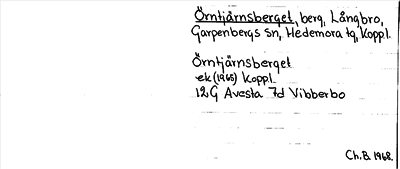 Örntjärnsberget, berg, Långbro,
Garpenbergs sn, Hedemora tg, Koppl.
Örntjärnsberget
ek (1965) Koppl.
12G Avesta 7d Vibberbo
Ch.B. 1968.